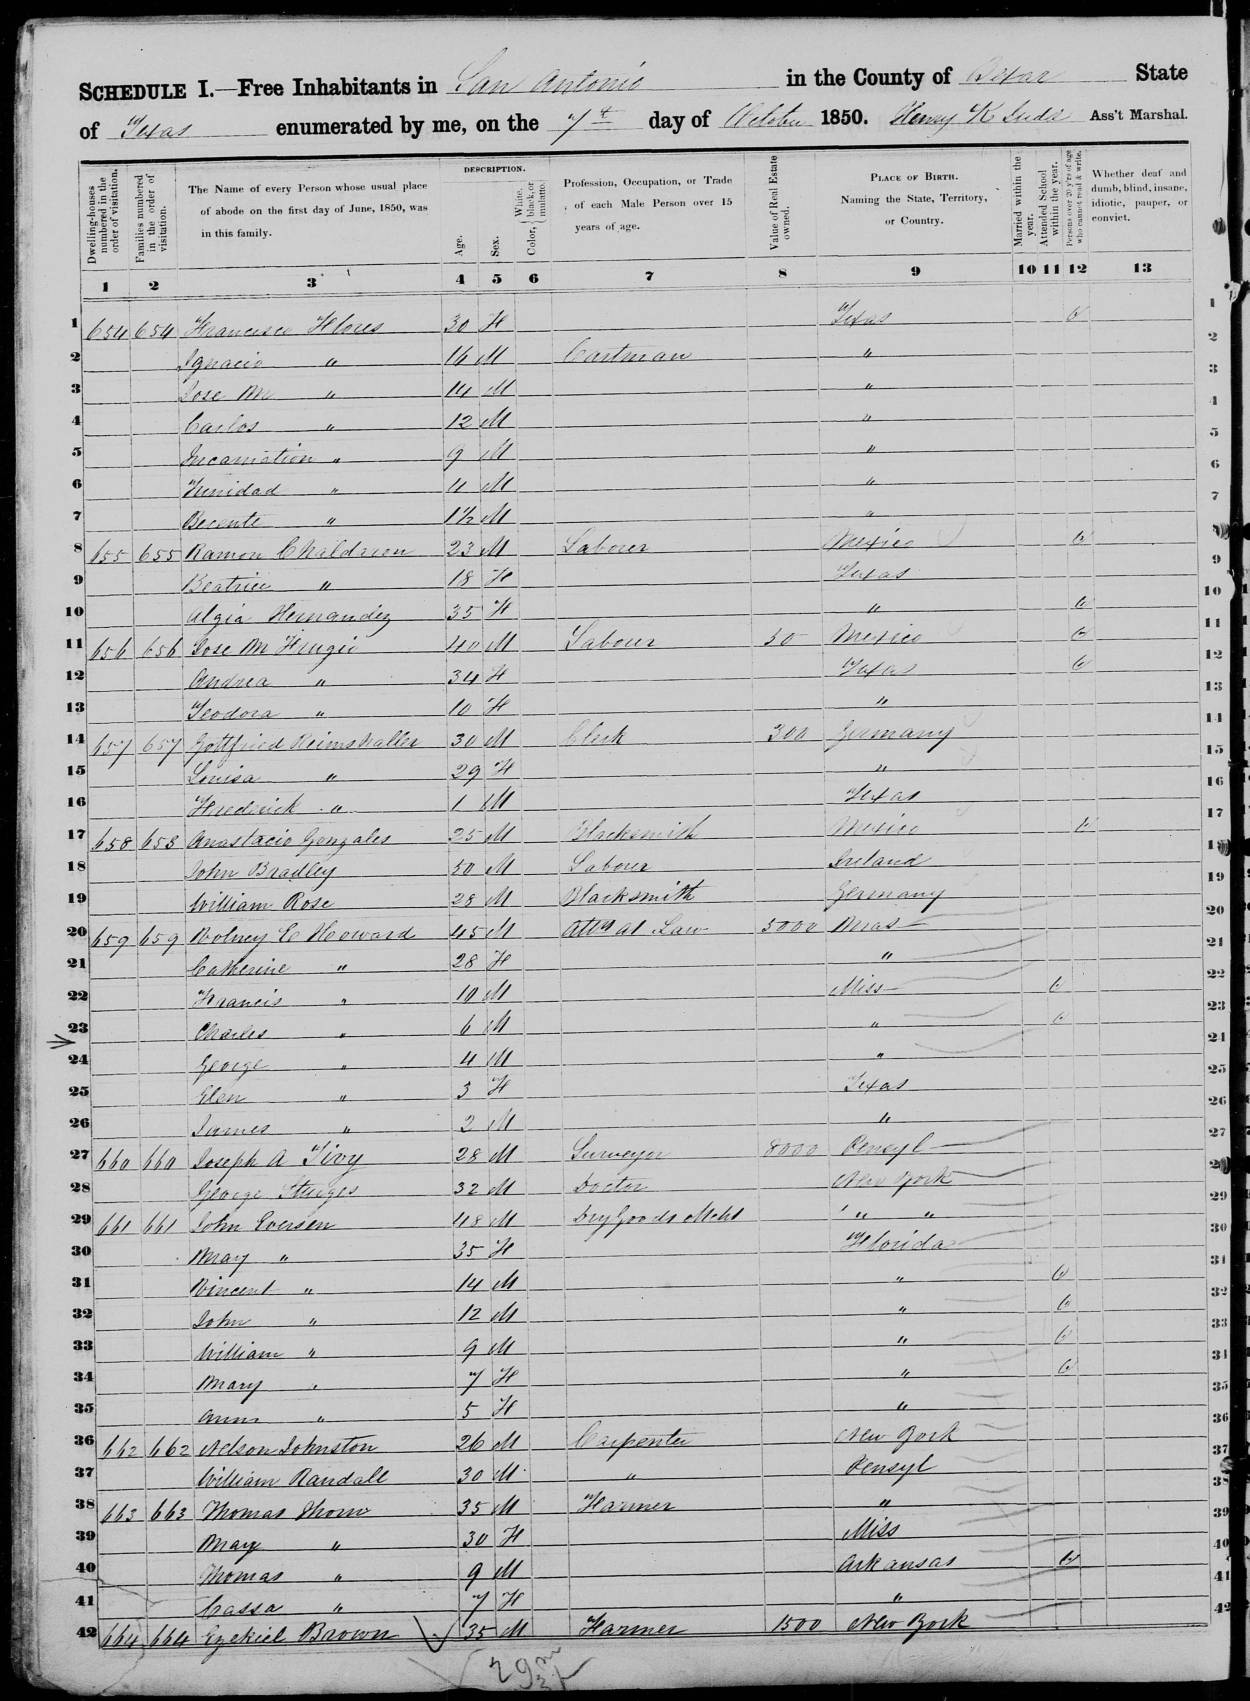 SCHEDULE I.—Free Inhabitants in San Antonio in the County of Bexar State
of Texas enumerated by me, on the 7th day of October 1850. Henry K Ass't Marshal.
Dwelling-houses numbered in the order of visitation.
Families numbered in the order of visitation.
The Name of every Person whose usual place of abode on the first day of June, 1850, was in this family.
DESCRIPTION.
Age.
Sex.
Color, White, black, or mulatto.
Profession, Occupation, or Trade of each Male Person over 15 years of age.
Value of Real Estate owned.
PLACE OF BIRTH. Naming the State, Territory, or Country.
Married within the year.
Attended School within the year.
Persons over 20 y'rs of age who cannot read & write.
Whether deaf and dumb, blind, insane, idiotic, pauper, or convict.
1 2 3 4 5 6 7 8 9 10 11 12 13
1 654 654 Francisca Flores 30 F Texas 1
2 Ignacio " 16 M Cartman " 2
3 Jose M " 14 M " 3
4 Carlos " 12 M " 4
5 Incarnation " 9 M " 5
6 Trinidad " 4 M " 6
7 Becente " 1½ M " 7
8 655 655 Ramon 23 M Laborer Mexico
9 Beatrice " 18 F Texas 9
10 Algia Hernandez 35 F " 10
11 656 656 Jose M 40 M Laborer 30 Mexico 11
12 Andrea " 34 F Texas 12
13 Teodora " 10 F " 13
14 657 657 Gottfried 30 M Clerk 300 Germany 14
15 Louisa " 29 F " 15
16 Frederick " 1 M Texas 16
17 658 658 Anastacio Gonzales 25 M Blacksmith Mexico 17
18 John Bradley 50 M Laborer Ireland
19 William Rose 28 M Blacksmith Germany 19
20 659 659 Volney E Howard 45 M Atty at Law 5000 20
21 Catherine " 28 F " 21
22 Francis " 10 M Miss 22
23 Charles " 6 M " 23
24 George " 4 M " 24
25 Elen " 3 F Texas 25
26 James " 2 M " 26
27 660 660 Joseph A Tivy 28 M Surveyor 8000 Pensyl 27
28 George Sturges 32 M Doctor New York
29 661 661 John Eversen 48 M Dry Goods Mcht " " 29
30 Mary " 35 F Florida 30
31 Vincent " 14 M " 31
32 John " 12 M " 32
33 William " 9 M " 33
34 Mary " 7 F " 34
35 Ann " 5 F " 35
36 662 662 Nelson Johnston 26 M Carpenter New York 36
37 William Randall 30 M " Pensyl 37
38 663 663 Thomas Thom 35 M Farmer " 38
39 Mary " 30 F Miss 39
40 Thomas " 9 M Arkansas 40
41 Cassa " 7 F " 41
42 664 664 Ezekiel Brown 35 M Farmer 1500 New York 42
29 m